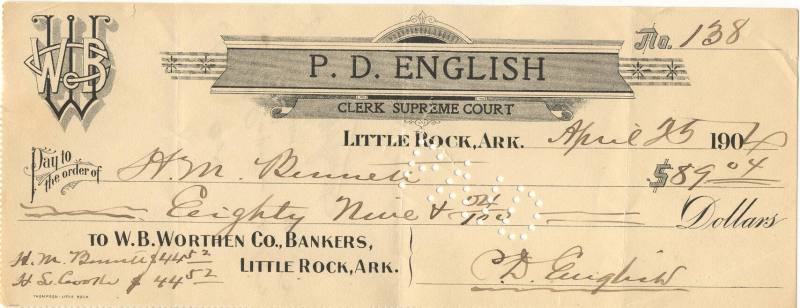 WBW Co
No. 138
P. D. ENGLISH
CLERK SUPREME COURT
LITTLE ROCK, ARK. April 25 1904
Pay to the order of H. M. Bennett $89.04
Eighty Nine & 04/100 Dollars
TO W. B. WORTHEN CO., BANKERS,
LITTLE ROCK, ARK.
H. M. Bennett $44 52
H S Cooke $ 44 52
P. D. English
THOMPSON-LITTLE ROCK